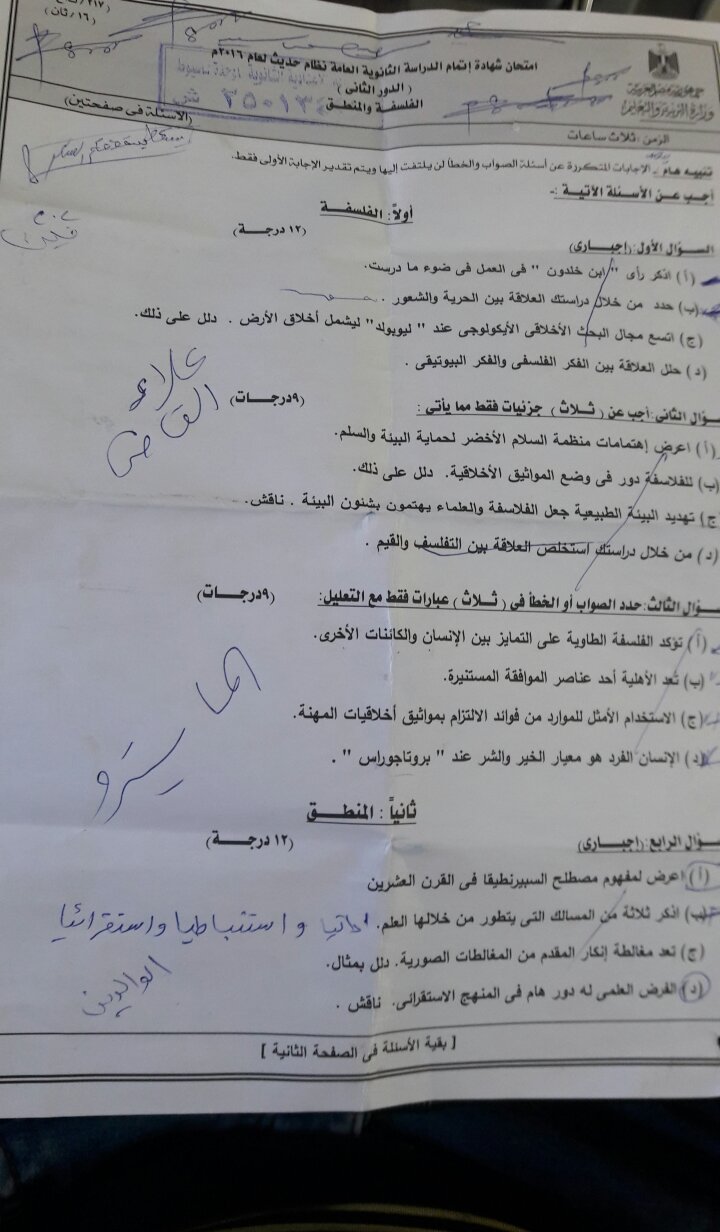 جمهورية مصر العربية
وزارة التربية والتعليم
امتحان شهادة إتمام الدراسة الثانوية العامة نظام حديث لعام ٢٠١٦م
(الدور الثانى)
الفلسفة والمنطق
٣٥٠١٣
(الأسئلة فى صفحتين)
الزمن : ثلاث ساعات
تنبيه هام :- الإجابات المتكررة عن أسئلة الصواب والخطأ لن يلتفت إليها ويتم تقدير الإجابة الأولى فقط.
أجب عن الأسئلة الآتية :-
أولاً : الفلسفة
السؤال الأول:(إجبارى) (١٢ درجة)
(أ) اذكر رأى " ابن خلدون " فى العمل فى ضوء ما درست.
(ب) حدد من خلال دراستك العلاقة بين الحرية والشعور .
(ج) اتسع مجال البحث الأخلاقى الأيكولوجى عند " ليوبولد" ليشمل أخلاق الأرض . دلل على ذلك.
(د) حلل العلاقة بين الفكر الفلسفى والفكر البيوتيقى .
سؤال الثانى: أجب عن ( ثلاث ) جزئيات فقط مما يأتى : (٩درجات)
(أ) اعرض إهتمامات منظمة السلام الأخضر لحماية البيئة والسلم.
(ب) للفلاسفة دور فى وضع المواثيق الأخلاقية. دلل على ذلك.
(ج) تهديد البيئة الطبيعية جعل الفلاسفة والعلماء يهتمون بشئون البيئة . ناقش.
(د) من خلال دراستك استخلص العلاقة بين التفلسف والقيم .
علاء
القاضى
سؤال الثالث: حدد الصواب أو الخطأ فى ( ثلاث ) عبارات فقط مع التعليل: (٩درجات)
(أ) تؤكد الفلسفة الطاوية على التمايز بين الإنسان والكائنات الأخرى.
(ب) تُعد الأهلية أحد عناصر الموافقة المستنيرة.
(ج) الاستخدام الأمثل للموارد من فوائد الالتزام بمواثيق أخلاقيات المهنة.
(د) الإنسان الفرد هو معيار الخير والشر عند " بروتاجوراس " .
ثانياً : المنطق
سؤال الرابع:(إجبارى) (١٢ درجة)
(أ) اعرض لمفهوم مصطلح السبيرنطيقا فى القرن العشرين
(ب) اذكر ثلاثة من المسالك التى يتطور من خلالها العلم. واستنباطيا واستقرائيا
(ج) تعد مغالطة إنكار المقدم من المغالطات الصورية. دلل بمثال.
(د) الفرض العلمى له دور هام فى المنهج الاستقرائى. ناقش .
[ بقية الأسئلة فى الصفحة الثانية ]